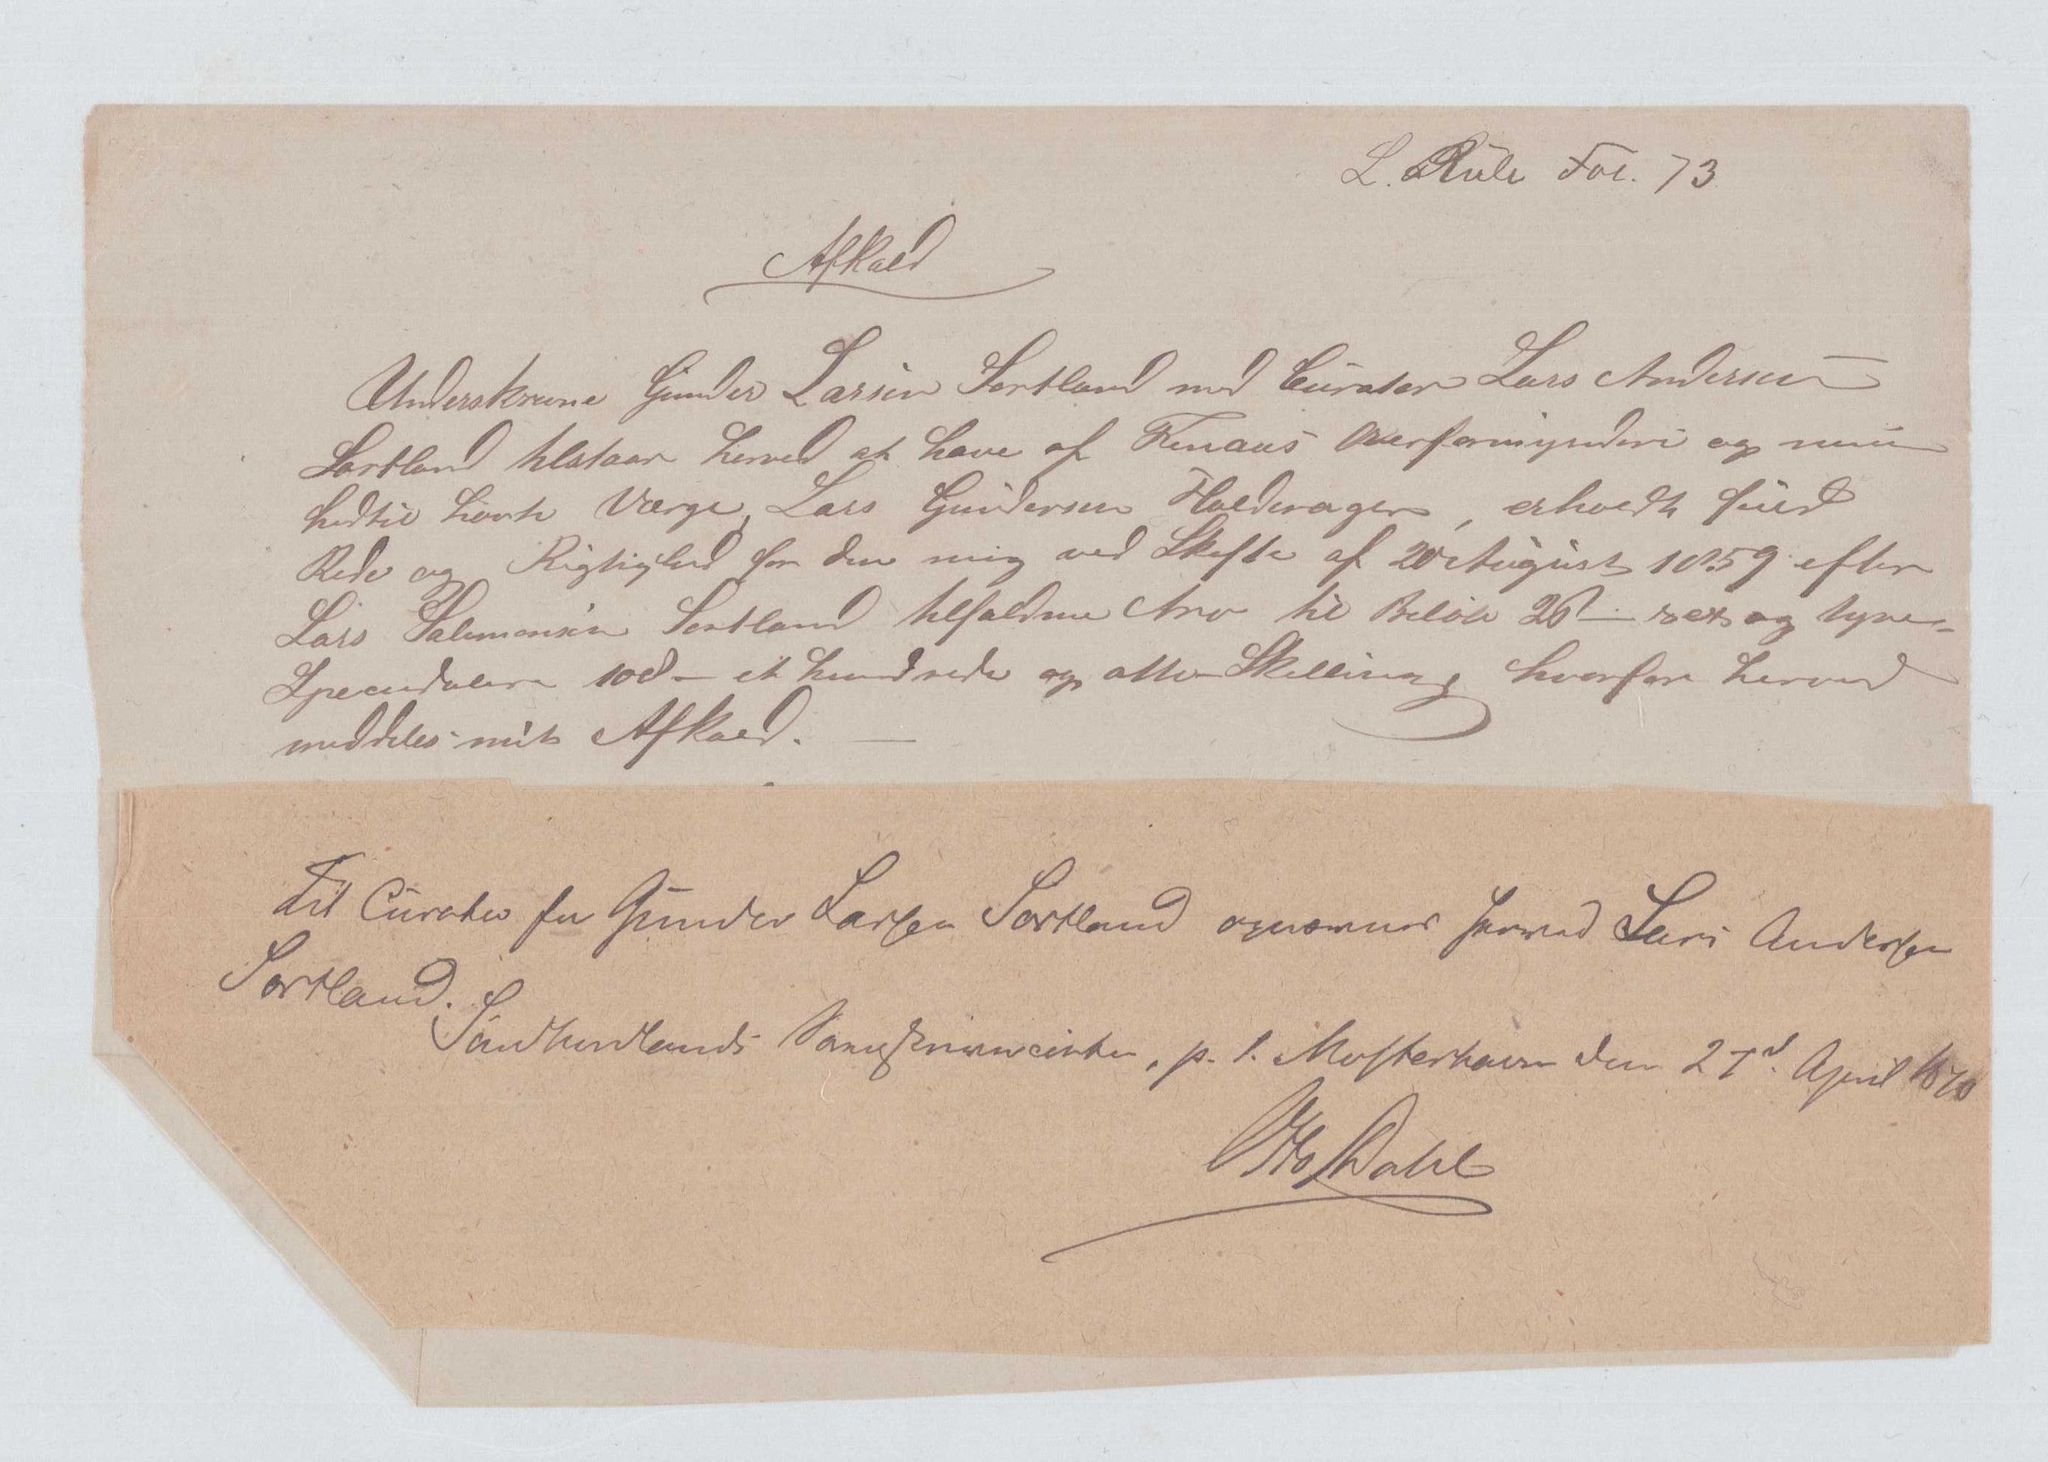 L. Rule Fol. 73
Afkald
Underskrevne Gunder Larsen Sortland med Curator Lars Andersen
Sortland tilstaar herved at have af Fenaas Overformynderi og min
hidtil havte Værge, Lars Gundersen Holdvagen, erholdt fuld
Rede og Rigtighed for den mig ved Skifte af 20 August 1859 efter
Lars Salemonsen Sortland tilfaldne Arv til Beløb 26 – sex og tyve –
Speciedaler 108 – et hundrede og otte Skilling, hvorfor herved
meddeles mit Afkald. –
Til Curator for Gunder Larsen Sortland opnævnes herved Lars Andersen
Sortland.
Søndhordlands Sorenskriverembede, p. t. Mosterhavn den 27d. April 1870
Otto Dahl